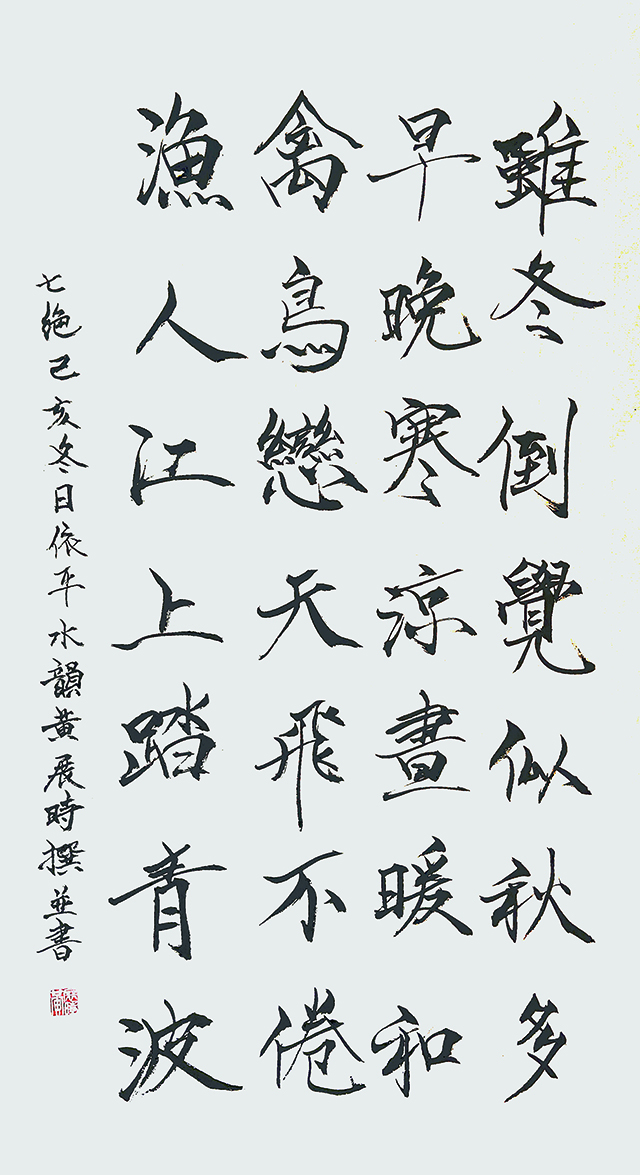 雖冬倒覺似秋多
早晚寒涼晝暖和
禽鳥戀天飛不倦
漁人江上踏青波
七絶己亥冬日依平水韻黄展時撰並書